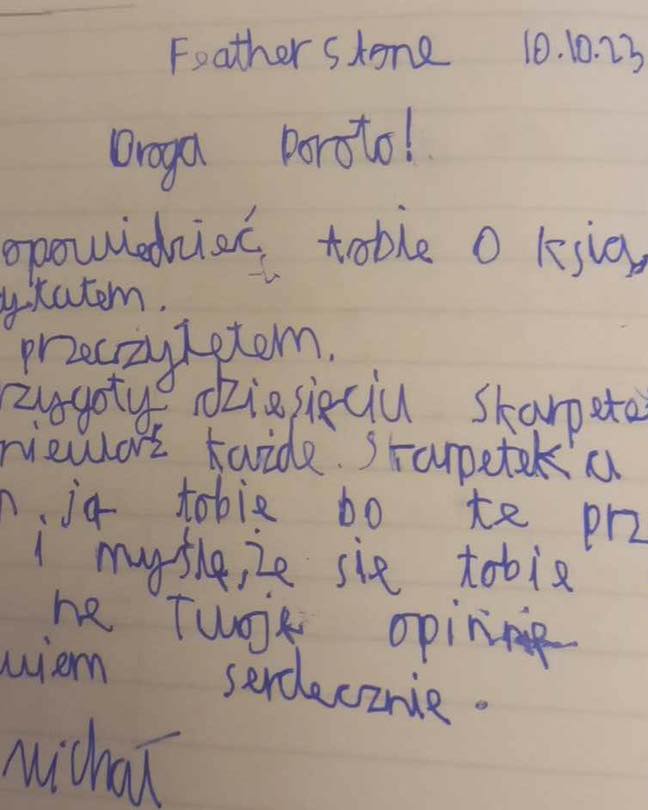 Featherstone 10.10.23
Droga Doroto!
opowiedzieć tobie o ksią
ytatem.
przeczytętem.
zygoty dziesięciu skarpete
nieważ każde. Skarpetek a
n. ją tobie bo te prz
i myślę, że się tobie
ne Twoję opinnie
wiem serdecznie.
Michał